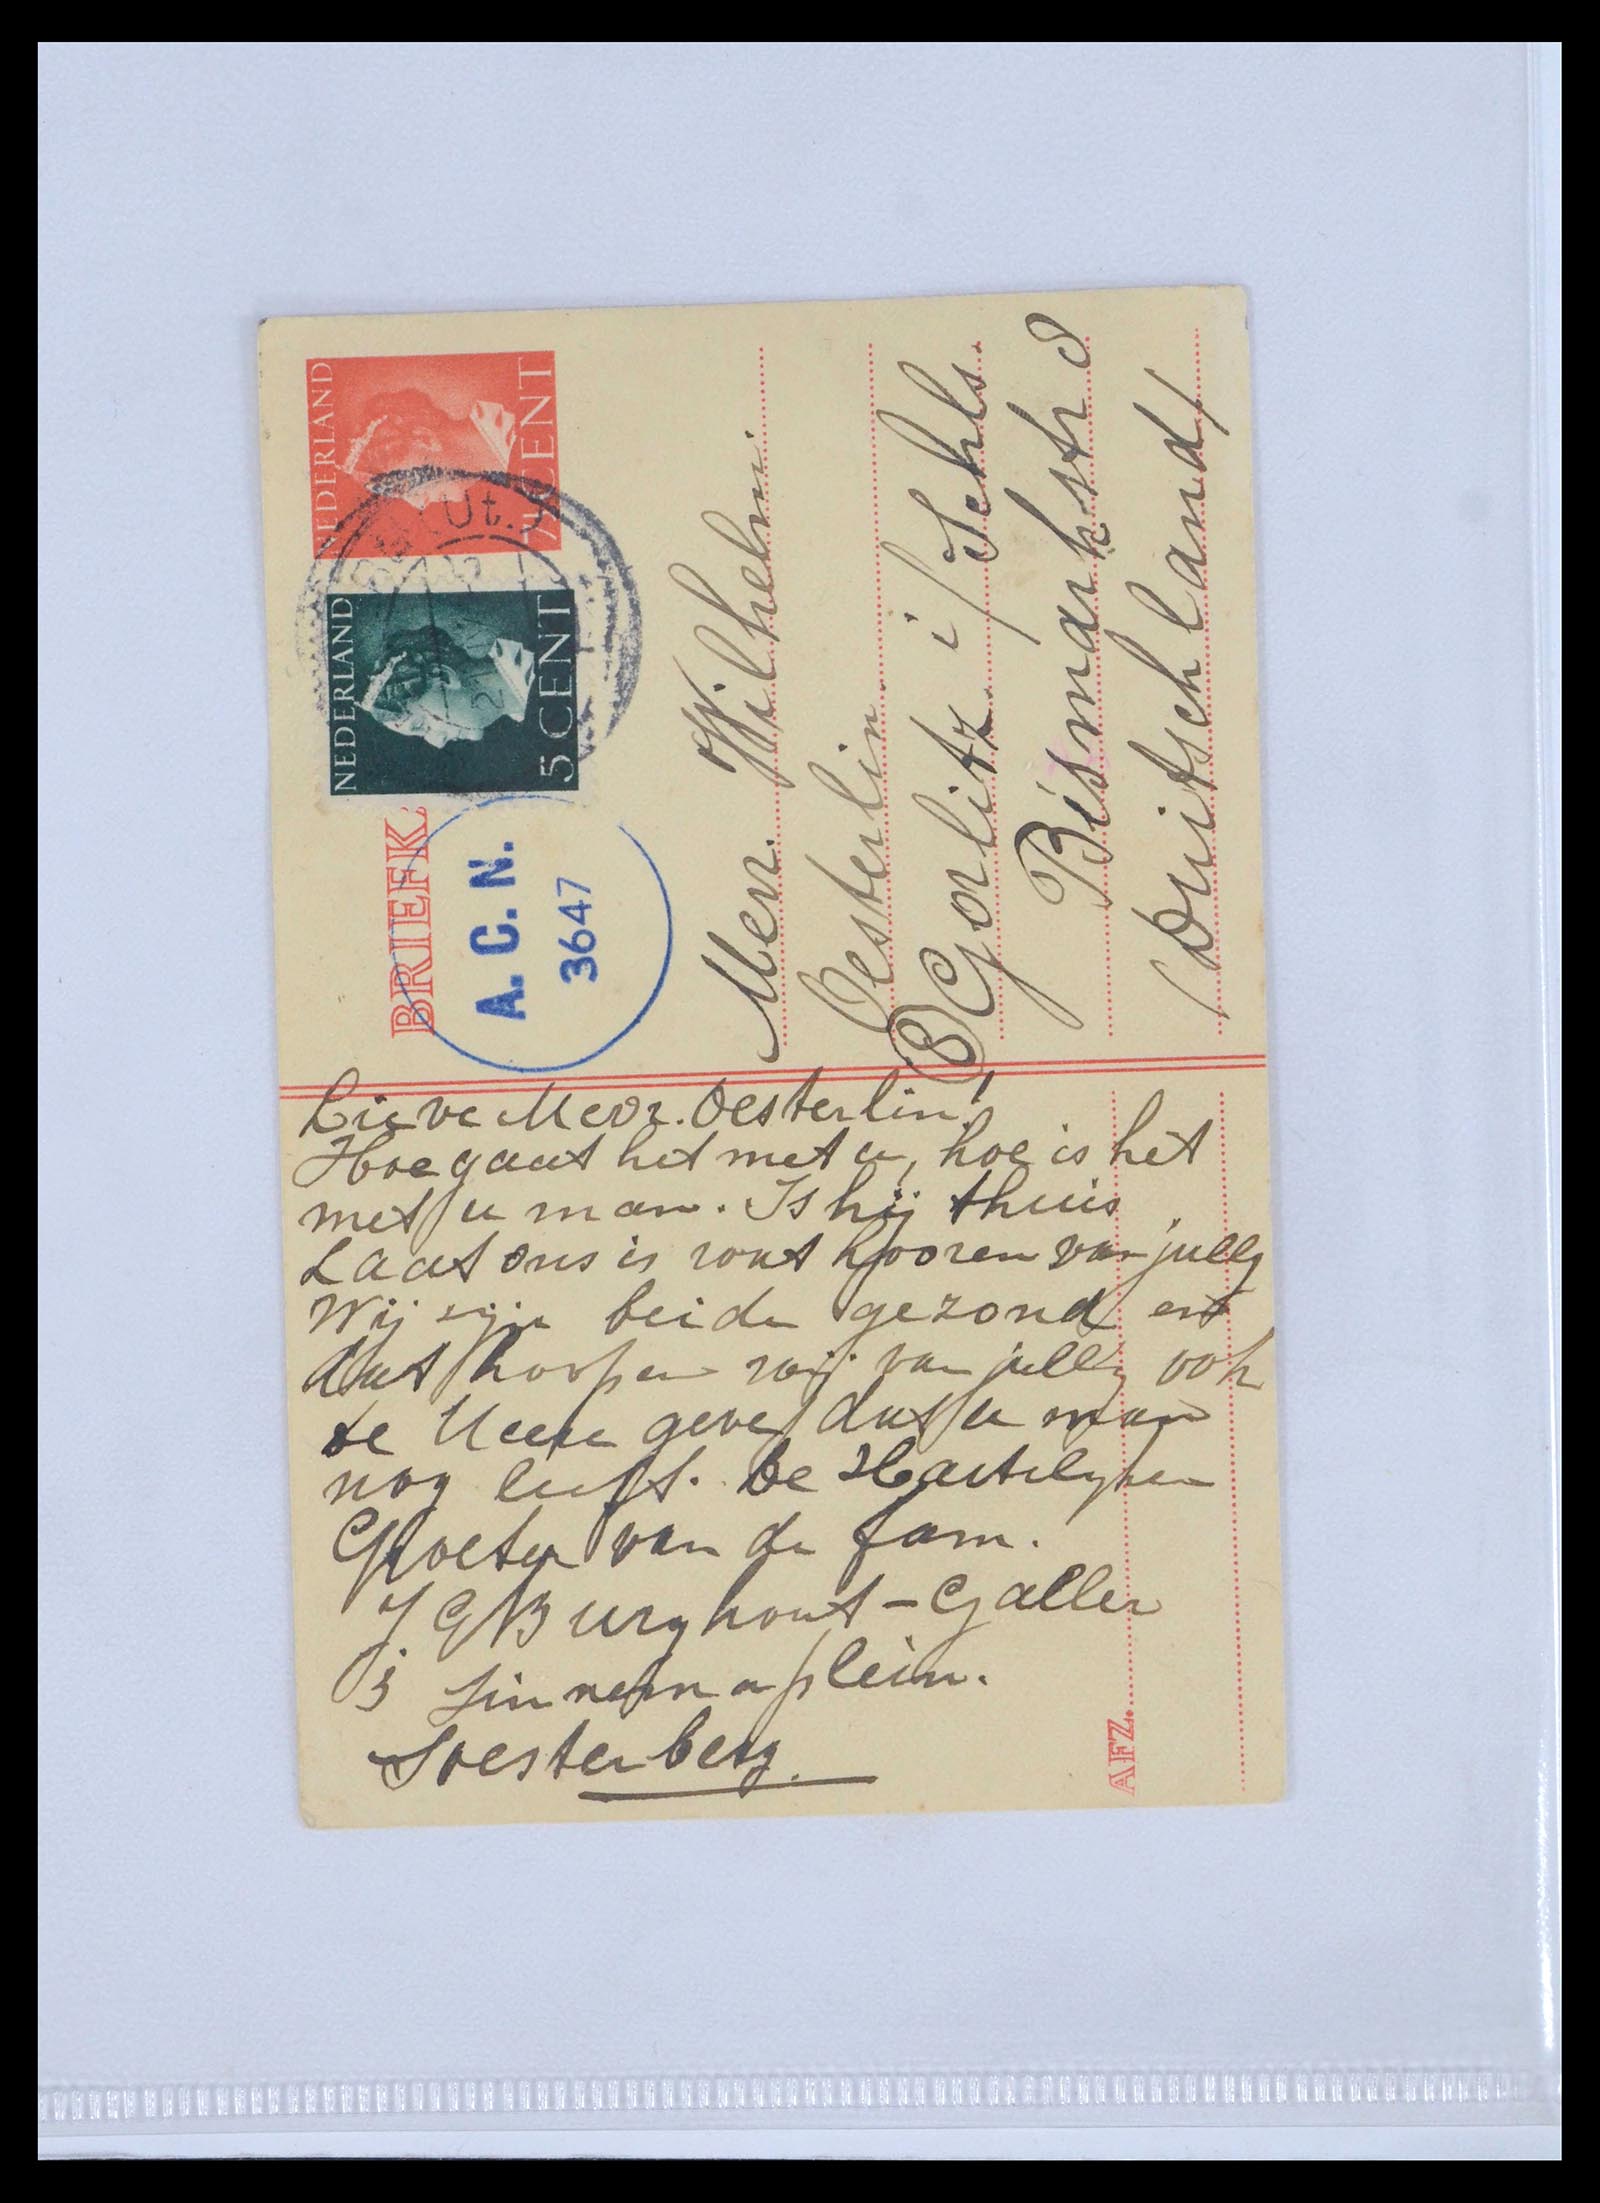 NEDERLAND
7½ CENT
NEDERLAND
5 CENT
Ut.
BRIEFK
A. C. N.
3647
Mevr. Wilhelm.
Oesterlin.
8 Gorlitz. i/Schls.
Bismarkstr 8
(Duitschland)
Lieve Mevr. Oesterlin!
Hoe gaat het met u, hoe is het
met u man. Is hij thuis
Laat ons is wat hooren van jully
Wij zijn beide gezond en
dat hoopen wij van jully ook
de Heere geve dat u man
nog leeft. De Hartelyken
Groeten van de fam.
J G Burghout-Galler
3 Sinnemaplein.
Soesterberg.
AFZ.